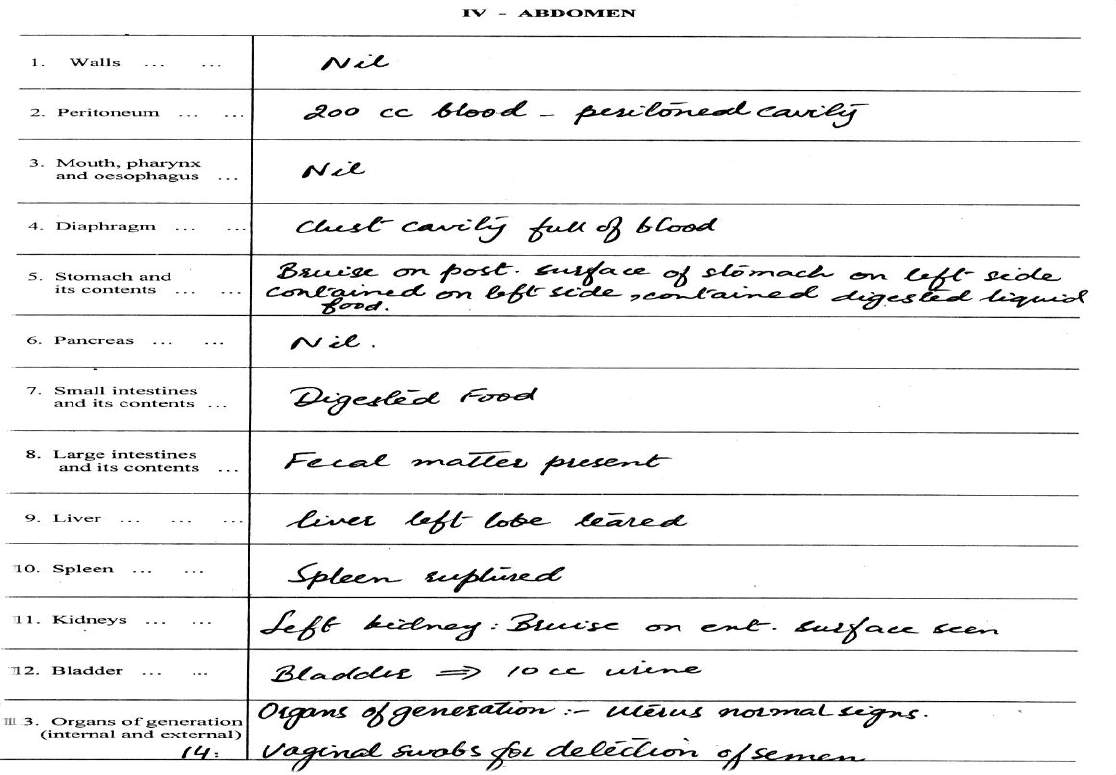 IV - ABDOMEN
1. Walls ... ... Nil
2. Peritoneum ... ... 200 cc blood - peritoneal cavity
3. Mouth, pharynx
and oesophagus ... Nil
4. Diaphragm ... ... Chest cavity full of blood
5. Stomach and Bruise on post. surface of stomach on left side
its contents ... ... contained on left side, contained digested liquid
food.
6. Pancreas ... ... Nil.
7. Small intestines
and its contents ... Digested Food
8. Large intestines
and its contents ... Fecal matter present
9. Liver ... ... ... liver left lobe teared
10. Spleen ... ... Spleen ruptured
11. Kidneys ... ... Left kidney : Bruise on ent. surface seen
12. Bladder ... ... Bladder ⇒ 10 cc urine
3. Organs of generation Organs of generation :- uterus normal signs.
(internal and external)
14: Vaginal swabs for detection of semen